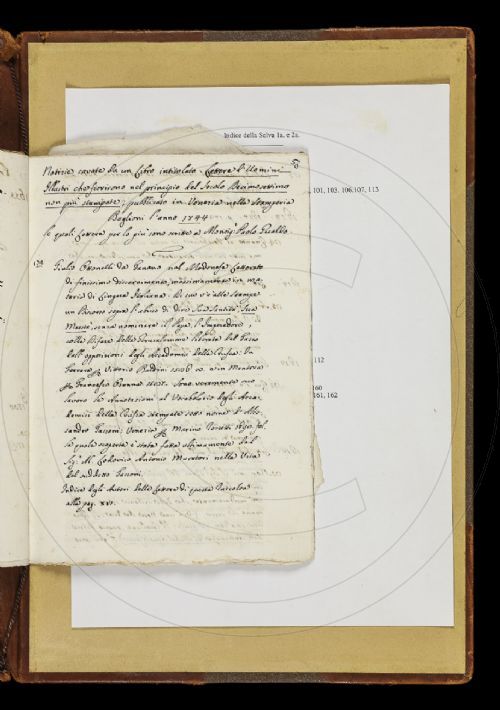 Indice della Selva 1a. e 2a.
101, 103, 106,107, 113
112
160
161, 162
Notizie cavate da un Libro intitolato. Lettere d'Uomini
Illustri che fiorirono nel principio del Secolo Decimosettimo
non più stampate; pubblicato in Venezia nella Stamperia
Baglioni l'anno 1744
le quali Lettere per lo più sono scritte a Monsig.r Paolo Gualdo
Giulio Ottonelli da Fanano nel Modonese Letterato
di finissimo discernimento, massimamente in ma
teria di Lingua Italiana. Di lui v'è alle stampe
un Discorso sopra l'abuso di dire Sua Santità, Sua
Maestà, senza nominare il Papa, l'Imperadore,
colle Difese della Gerusalemme liberata del Tasso
dall'opposizioni degli Accademici della Crusca. In
Ferrara Vittorio Baldini 1586 e in Mantova
Francesco Osanna
lavoro le Annotazioni al Vocabolario degli Acca
demici della Crusca stampate 1698 nome d'Ales
sandro Tassoni; Venezia Marino Rossetti
la quale
Sig.r Lodovico Antonio Muratori nella Vita
del suddetto Tassoni.
Indice degli Autori delle Lettere di questa Raccolta
alla pag. XVI.